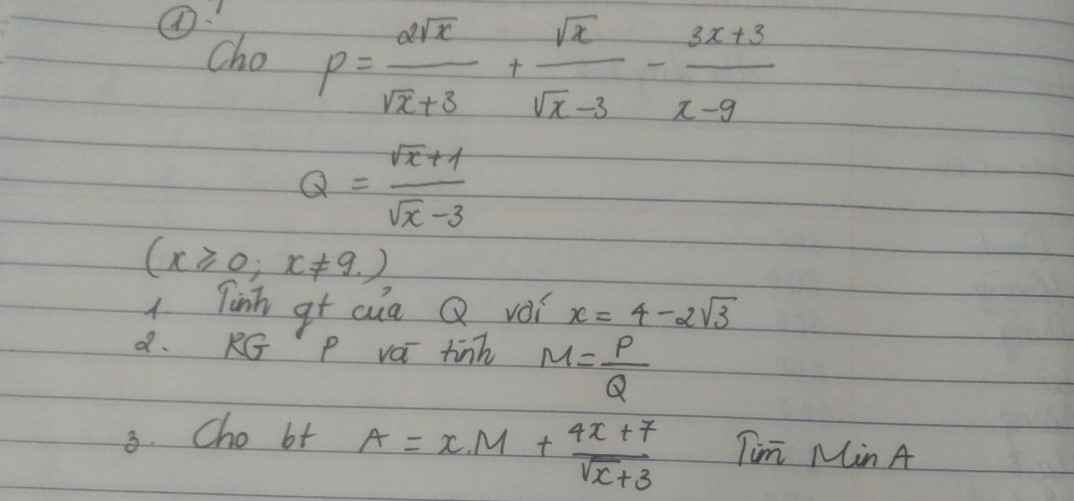 ①.
Cho P = 2√x/(√x+3) + √x/(√x-3) - (3x+3)/(x-9)
Q = (√x+1)/(√x-3)
(x ≥ 0; x ≠ 9.)
1 Tính gt của Q với x = 4-2√3
2. RG P và tính M = P/Q
3. Cho bt A = x.M + (4x+7)/(√x+3) Tìm Min A